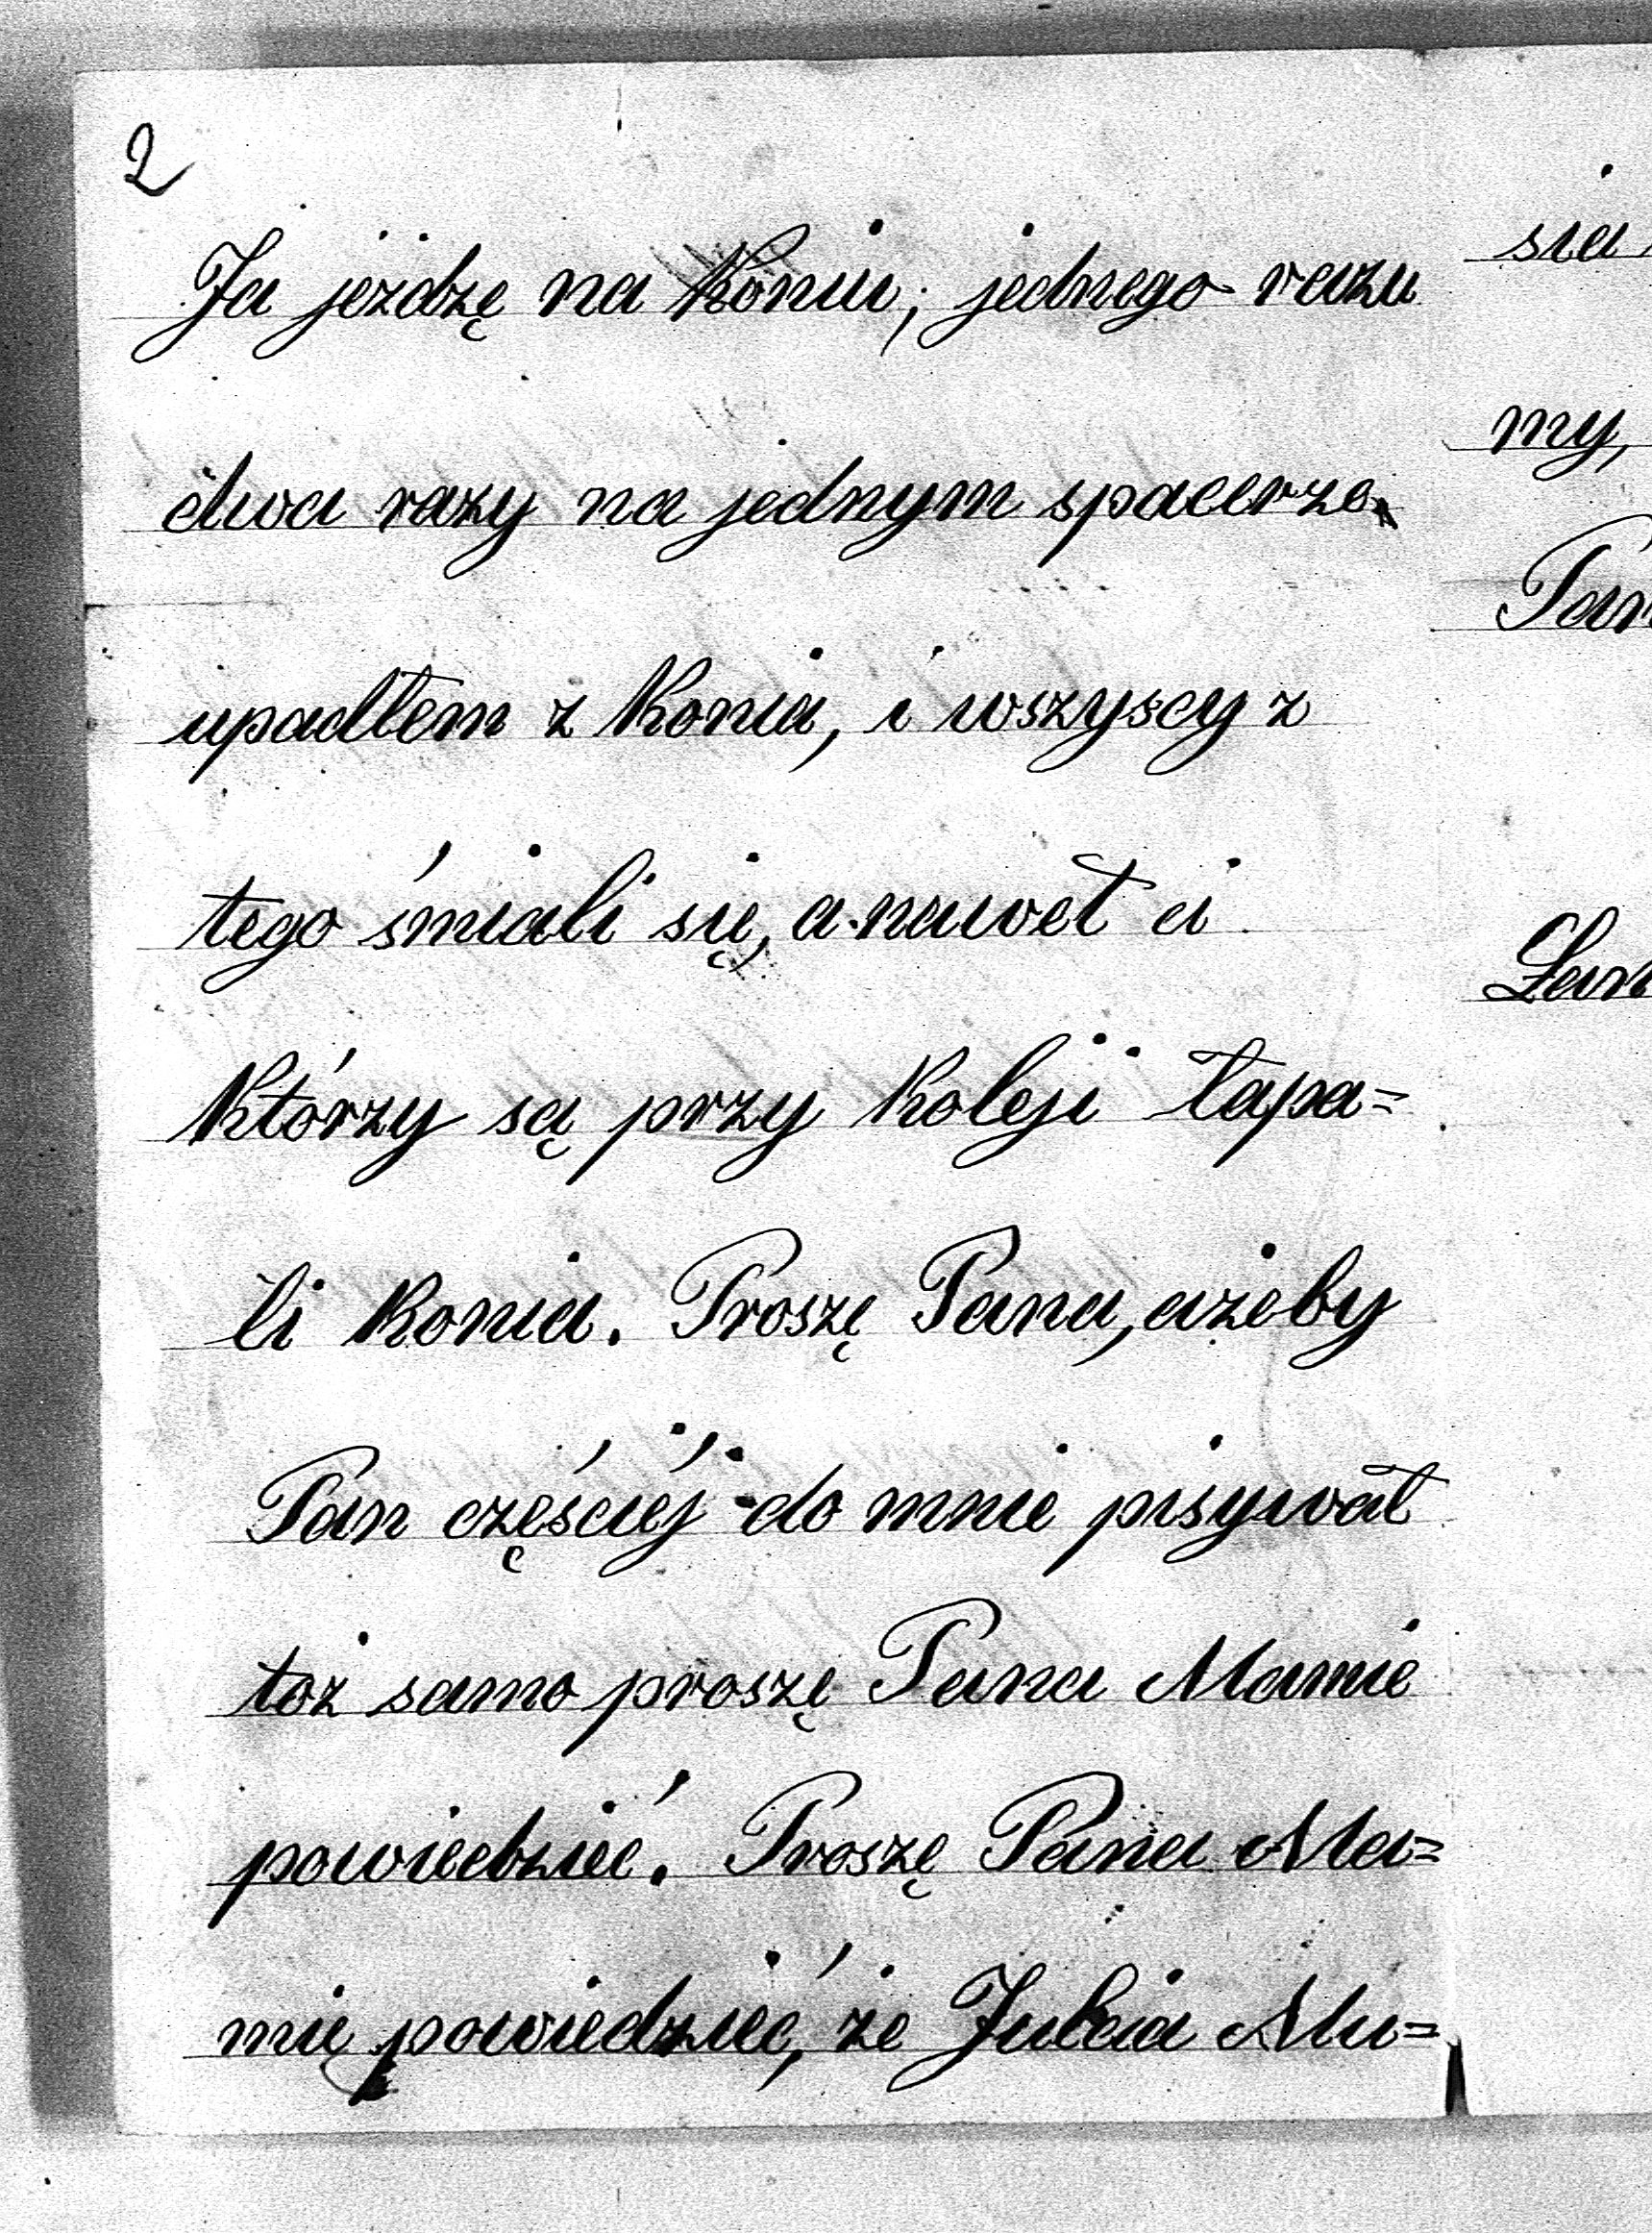 2
Ja jeżdżę na koniu; jednego razu
dwa razy na jednym spacerze
upadłem z konia, i wszyscy z
tego śmiali się, a nawet ci
którzy są przy koleji łapa=
li konia. Proszę Pana, ażeby
Pan częściéj do mnie pisywał
toż samo proszę Pana Mamie
powiedzieć. Proszę Pana Ma=
mię powiedzieć, że Julcia Mu=
sia
my,
Pan